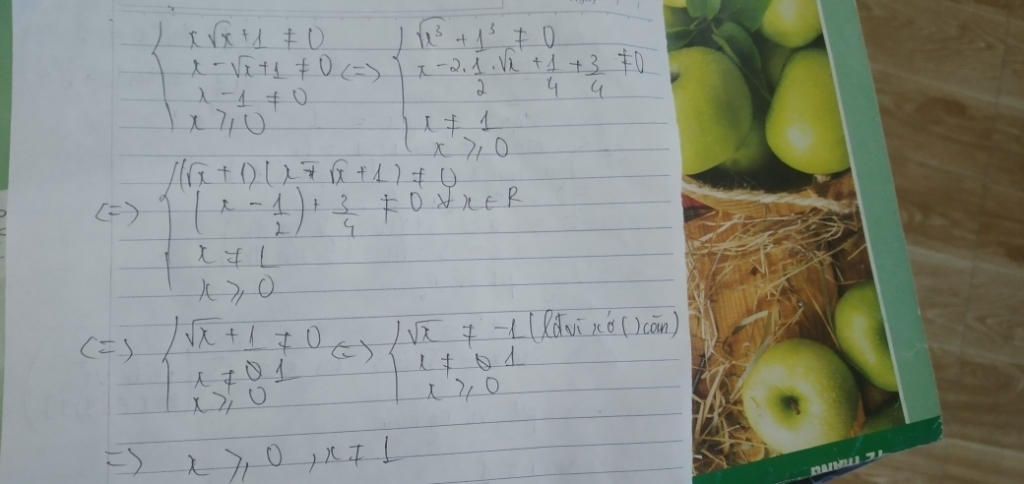 x√x + 1 ≠ 0
x - √x + 1 ≠ 0
x - 1 ≠ 0
x ≥ 0
<=>
√x³ + 1³ ≠ 0
x - 2. 1/2 .√x + 1/4 + 3/4 ≠ 0
x ≠ 1
x ≥ 0
<=>
(√x + 1)(x - √x + 1) ≠ 0
(x - 1/2) + 3/4 ≠ 0 ∀ x ∈ R
x ≠ 1
x ≥ 0
<=>
√x + 1 ≠ 0
x ≠ 1
x ≥ 0
<=>
√x ≠ -1 (lđ vì x ở () căn)
x ≠ 1
x ≥ 0
=> x ≥ 0, x ≠ 1